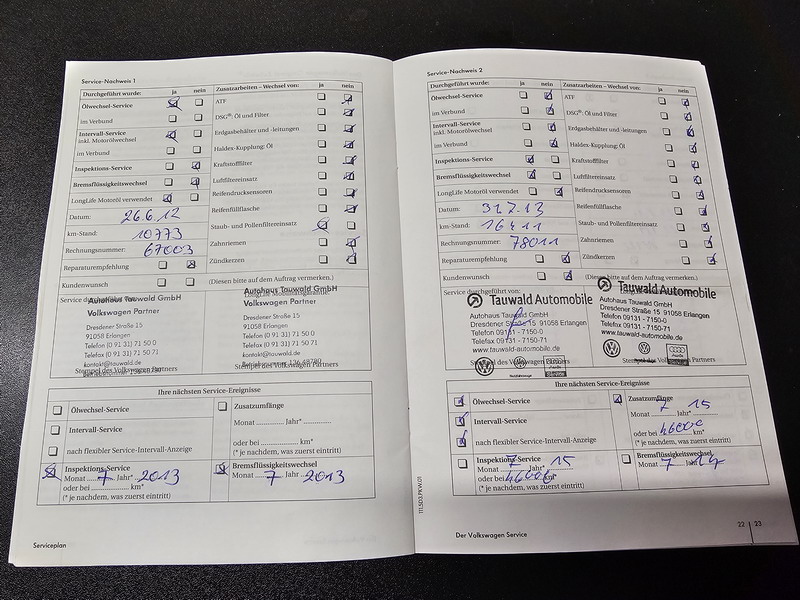 Service-Nachweis 1
Durchgeführt wurde: ja nein
Ölwechsel-Service
im Verbund
Intervall-Service
inkl. Motorölwechsel
im Verbund
Inspektions-Service
Bremsflüssigkeitswechsel
LongLife Motoröl verwendet
Datum: 26.6.12
km-Stand: 10773
Rechnungsnummer: 67003
Reparaturempfehlung
Kundenwunsch
Zusatzarbeiten – Wechsel von: ja nein
ATF
DSG®: Öl und Filter
Erdgasbehälter und -leitungen
Haldex-Kupplung: Öl
Kraftstofffilter
Luftfiltereinsatz
Reifendrucksensoren
Reifenfüllflasche
Staub- und Pollenfiltereinsatz
Zahnriemen
Zündkerzen
(Diesen bitte auf dem Auftrag vermerken.)
Autohaus Tauwald GmbH
Volkswagen Partner
Dresdener Straße 15
91058 Erlangen
Telefon (0 91 31) 71 50 0
Telefax (0 91 31) 71 50 71
kontakt@tauwald.de
Autohaus Tauwald GmbH
Volkswagen Partner
Dresdener Straße 15
91058 Erlangen
Telefon (0 91 31) 71 50 0
Telefax (0 91 31) 71 50 71
kontakt@tauwald.de
Stempel des Volkswagen Partners
Stempel des Volkswagen Partners
Ihre nächsten Service-Ereignisse
Ölwechsel-Service
Intervall-Service
nach flexibler Service-Intervall-Anzeige
Zusatzumfänge
Monat Jahr*
oder bei km*
(* je nachdem, was zuerst eintritt)
Inspektions-Service
Monat 7 Jahr* 2013
oder bei km*
(* je nachdem, was zuerst eintritt)
Bremsflüssigkeitswechsel
Monat 7 Jahr 2013
Serviceplan
Service-Nachweis 2
Durchgeführt wurde: ja nein
Ölwechsel-Service
im Verbund
Intervall-Service
inkl. Motorölwechsel
im Verbund
Inspektions-Service
Bremsflüssigkeitswechsel
LongLife Motoröl verwendet
Datum: 31.7.13
km-Stand: 16411
Rechnungsnummer: 78011
Reparaturempfehlung
Kundenwunsch
Zusatzarbeiten – Wechsel von: ja nein
ATF
DSG®: Öl und Filter
Erdgasbehälter und -leitungen
Haldex-Kupplung: Öl
Kraftstofffilter
Luftfiltereinsatz
Reifendrucksensoren
Reifenfüllflasche
Staub- und Pollenfiltereinsatz
Zahnriemen
Zündkerzen
(Diesen bitte auf dem Auftrag vermerken.)
Service durchgeführt von:
Tauwald Automobile
Autohaus Tauwald GmbH
Dresdener Straße 15 91058 Erlangen
Telefon 09131 - 7150-0
Telefax 09131 - 7150-71
www.tauwald-automobile.de
Tauwald Automobile
Autohaus Tauwald GmbH
Dresdener Straße 15 91058 Erlangen
Telefon 09131 - 7150-0
Telefax 09131 - 7150-71
www.tauwald-automobile.de
Stempel des Volkswagen Partners
Stempel des Volkswagen Partners
Ihre nächsten Service-Ereignisse
Ölwechsel-Service
Intervall-Service
nach flexibler Service-Intervall-Anzeige
Zusatzumfänge
Monat 7 Jahr* 15
oder bei 46000 km*
(* je nachdem, was zuerst eintritt)
Inspektions-Service
Monat 7 Jahr* 15
oder bei 46000 km*
(* je nachdem, was zuerst eintritt)
Bremsflüssigkeitswechsel
Monat 7 Jahr 14
111.5D3.PKW.01
22 23
Der Volkswagen Service